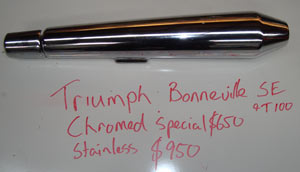 Triumph Bonneville SE
& T100
Chromed special $650
Stainless $950